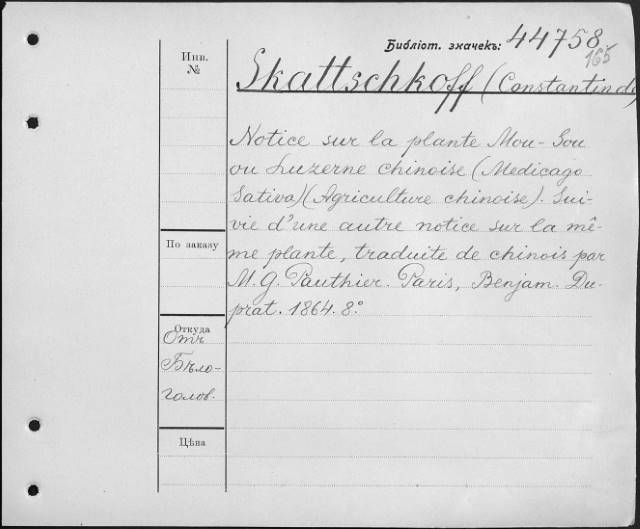 Библіот. значекъ: 44758
165
Инв.
№
Skattschkoff (Constantin de)
Notice sur la plante Mou-Sou
ou Luzerne chinoise (Medicago
Sativa) (Agriculture chinoise). Sui-
vie d'une autre notice sur la mê-
me plante, traduite de chinois par
M. G. Pauthier. Paris, Benjam. Du-
prat. 1864. 8º
По заказу
Откуда
Отъ
Бѣло-
голов.
Цѣна